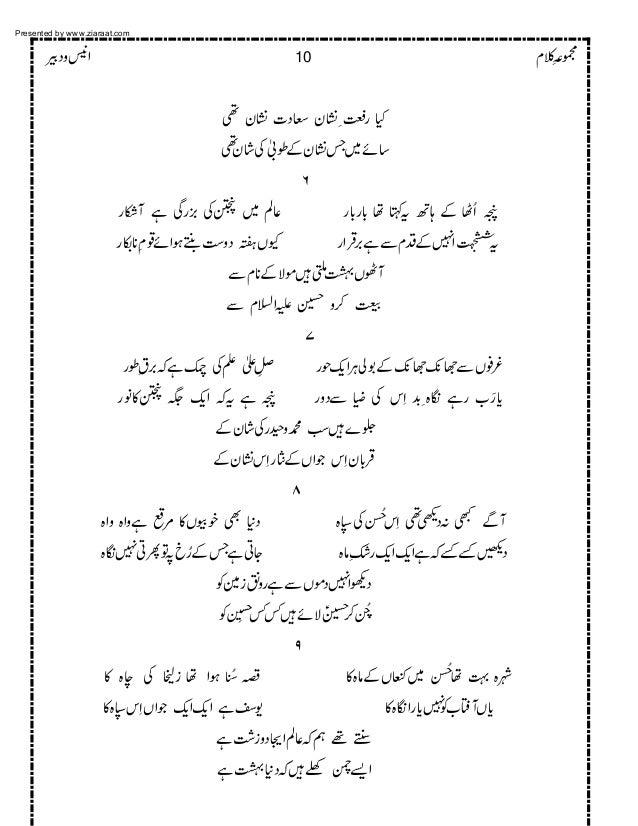 Presented by www.ziaraat.com
مجموعہ کلام 10 انیس و دبیر
کیا رفعتِ نشان سعادت نشان تھی
سائے میں جس نشان کے طوبیٰ کی شان تھی
۶
پنجہ اُٹھا کے ہاتھ یہ کہتا تھا بار بار عالم میں پنجتن کی بزرگی ہے آشکار
یہ ششجہت انہیں کے قدم سے ہے برقرار کیوں ہفتہ دوست بنتے ہو اے قومِ نابکار
آٹھوں بہشت ملتی ہیں مولا کے نام سے
بیعت کرو حسین علیہ السلام سے
۷
غرفوں سے جھانک جھانک کے بولی ہر ایک حور صلِ علیٰ علم کی چمک ہے کہ برق طور
یارَب رہے نگاہِ بد اِس کی ضیا سے دور پنجہ ہے یہ کہ ایک جگہ پنجتن کا نور
جلوے ہیں سب محمد و حیدر کی شان کے
قربان اِس جواں کے نثار اِس نشان کے
۸
آگے کبھی نہ دیکھی تھی اِس حُسن کی سپاہ دنیا بھی خوبیوں کا مرقع ہے واہ واہ
دیکھیں کسے کسے کہ ہے ایک ایک رشکِ ماہ جاتی ہے جس کے رُخ پہ تو پھرتی نہیں نگاہ
دیکھو انہیں دموں سے ہے رونق زمین کو
چُن کر حسینؑ لائے ہیں کس کس حسین کو
۹
شہرہ بہت تھا حُسن میں کنعاں کے ماہ کا قصہ سُنا ہوا تھا زلیخا کی چاہ کا
یاں آفتاب کو نہیں یارا نگاہ کا یوسف ہے ایک ایک جواں اِس سپاہ کا
سنتے تھے ہم کہ عالم ایجاد زشت ہے
ایسے چمن کھلے ہیں کہ دنیا بہشت ہے